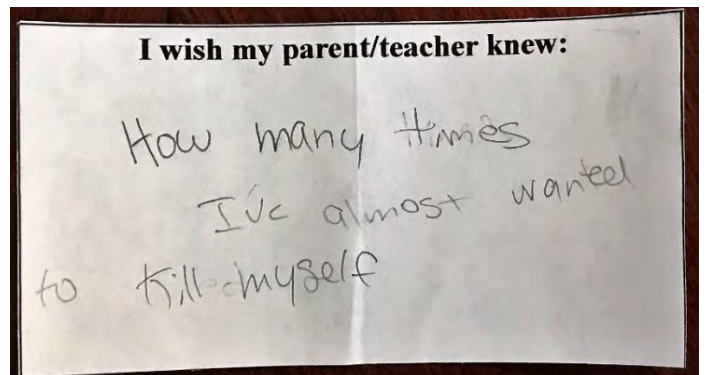 I wish my parent/teacher knew:
How many times
I've almost wanted
to kill myself